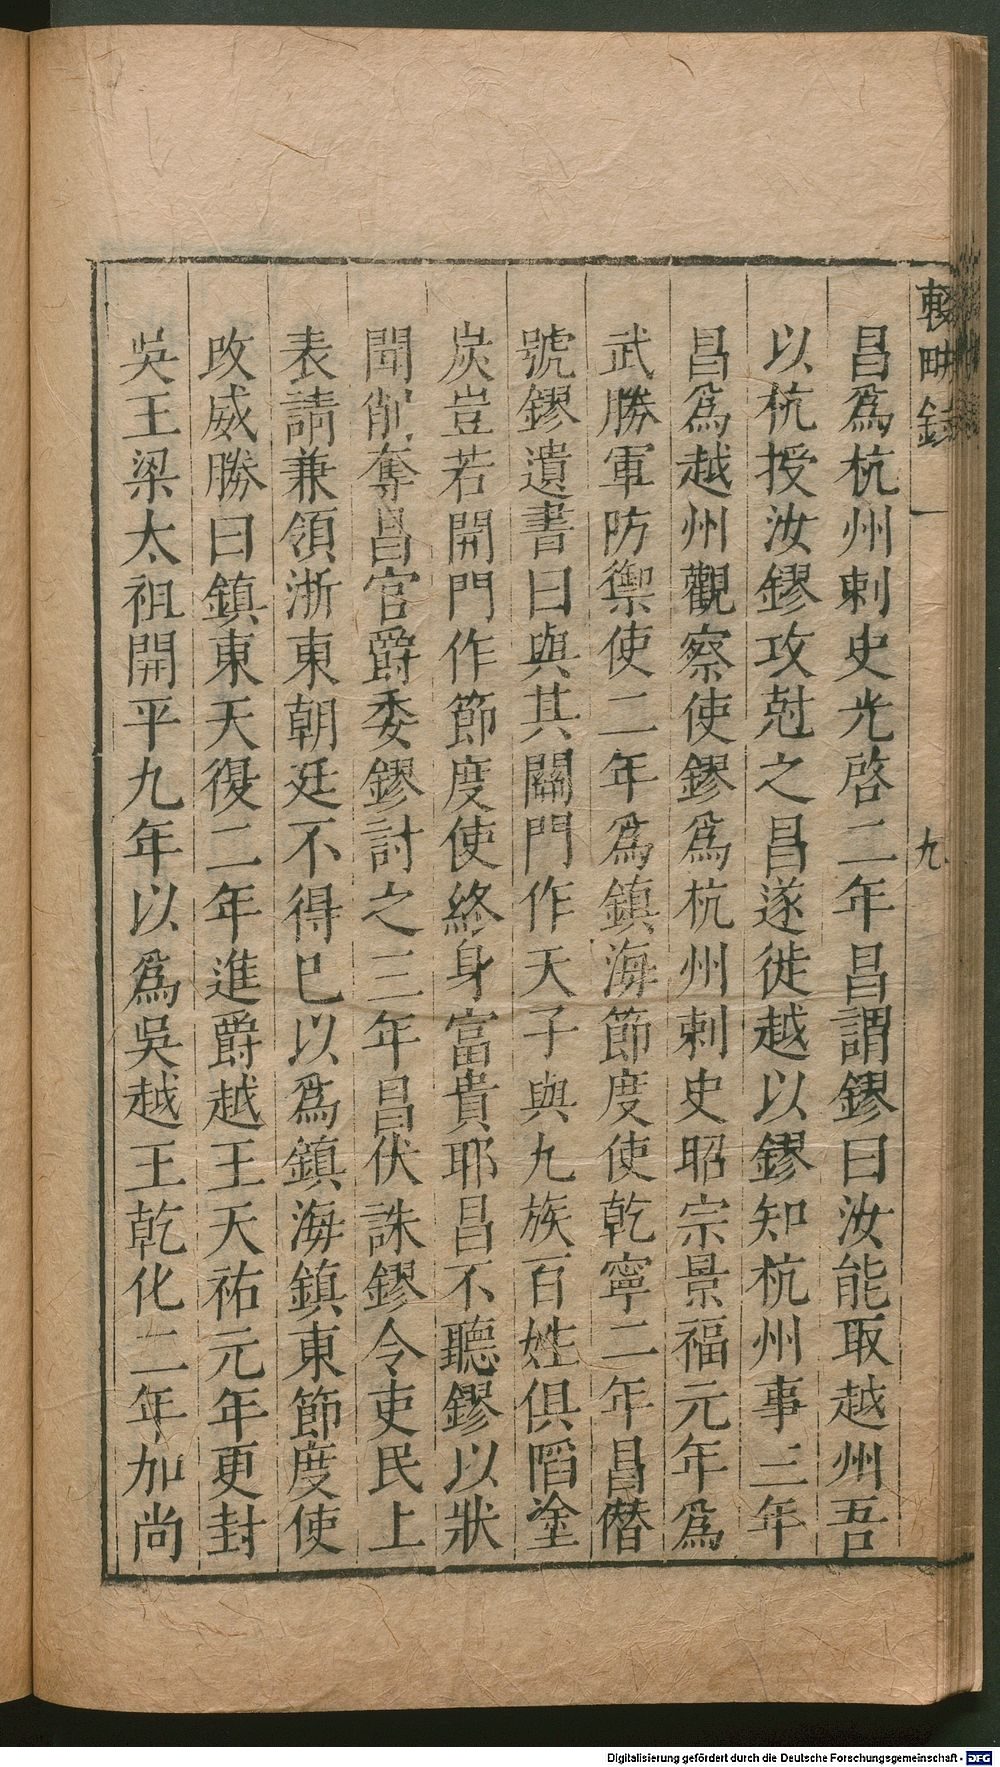 輟畊錄 一 九
昌爲杭州剌史光啓二年昌謂鏐曰汝能取越州吾
以杭授汝鏐攻尅之昌遂徙越以鏐知杭州事三年
昌爲越州觀察使鏐爲杭州剌史昭宗景福元年爲
武勝軍防禦使二年爲鎮海節度使乾寧二年昌僭
號鏐遺書曰與其關門作天子與九族百姓俱陷塗
炭豈若開門作節度使終身富貴耶昌不聽鏐以狀
聞削奪昌官爵委鏐討之三年昌伏誅鏐令吏民上
表請兼領浙東朝廷不得已以爲鎮海鎮東節度使
改威勝曰鎮東天復二年進爵越王天祐元年更封
吳王梁太祖開平九年以爲吳越王乾化二年加尚
Digitalisierung gefördert durch die Deutsche Forschungsgemeinschaft - DFG